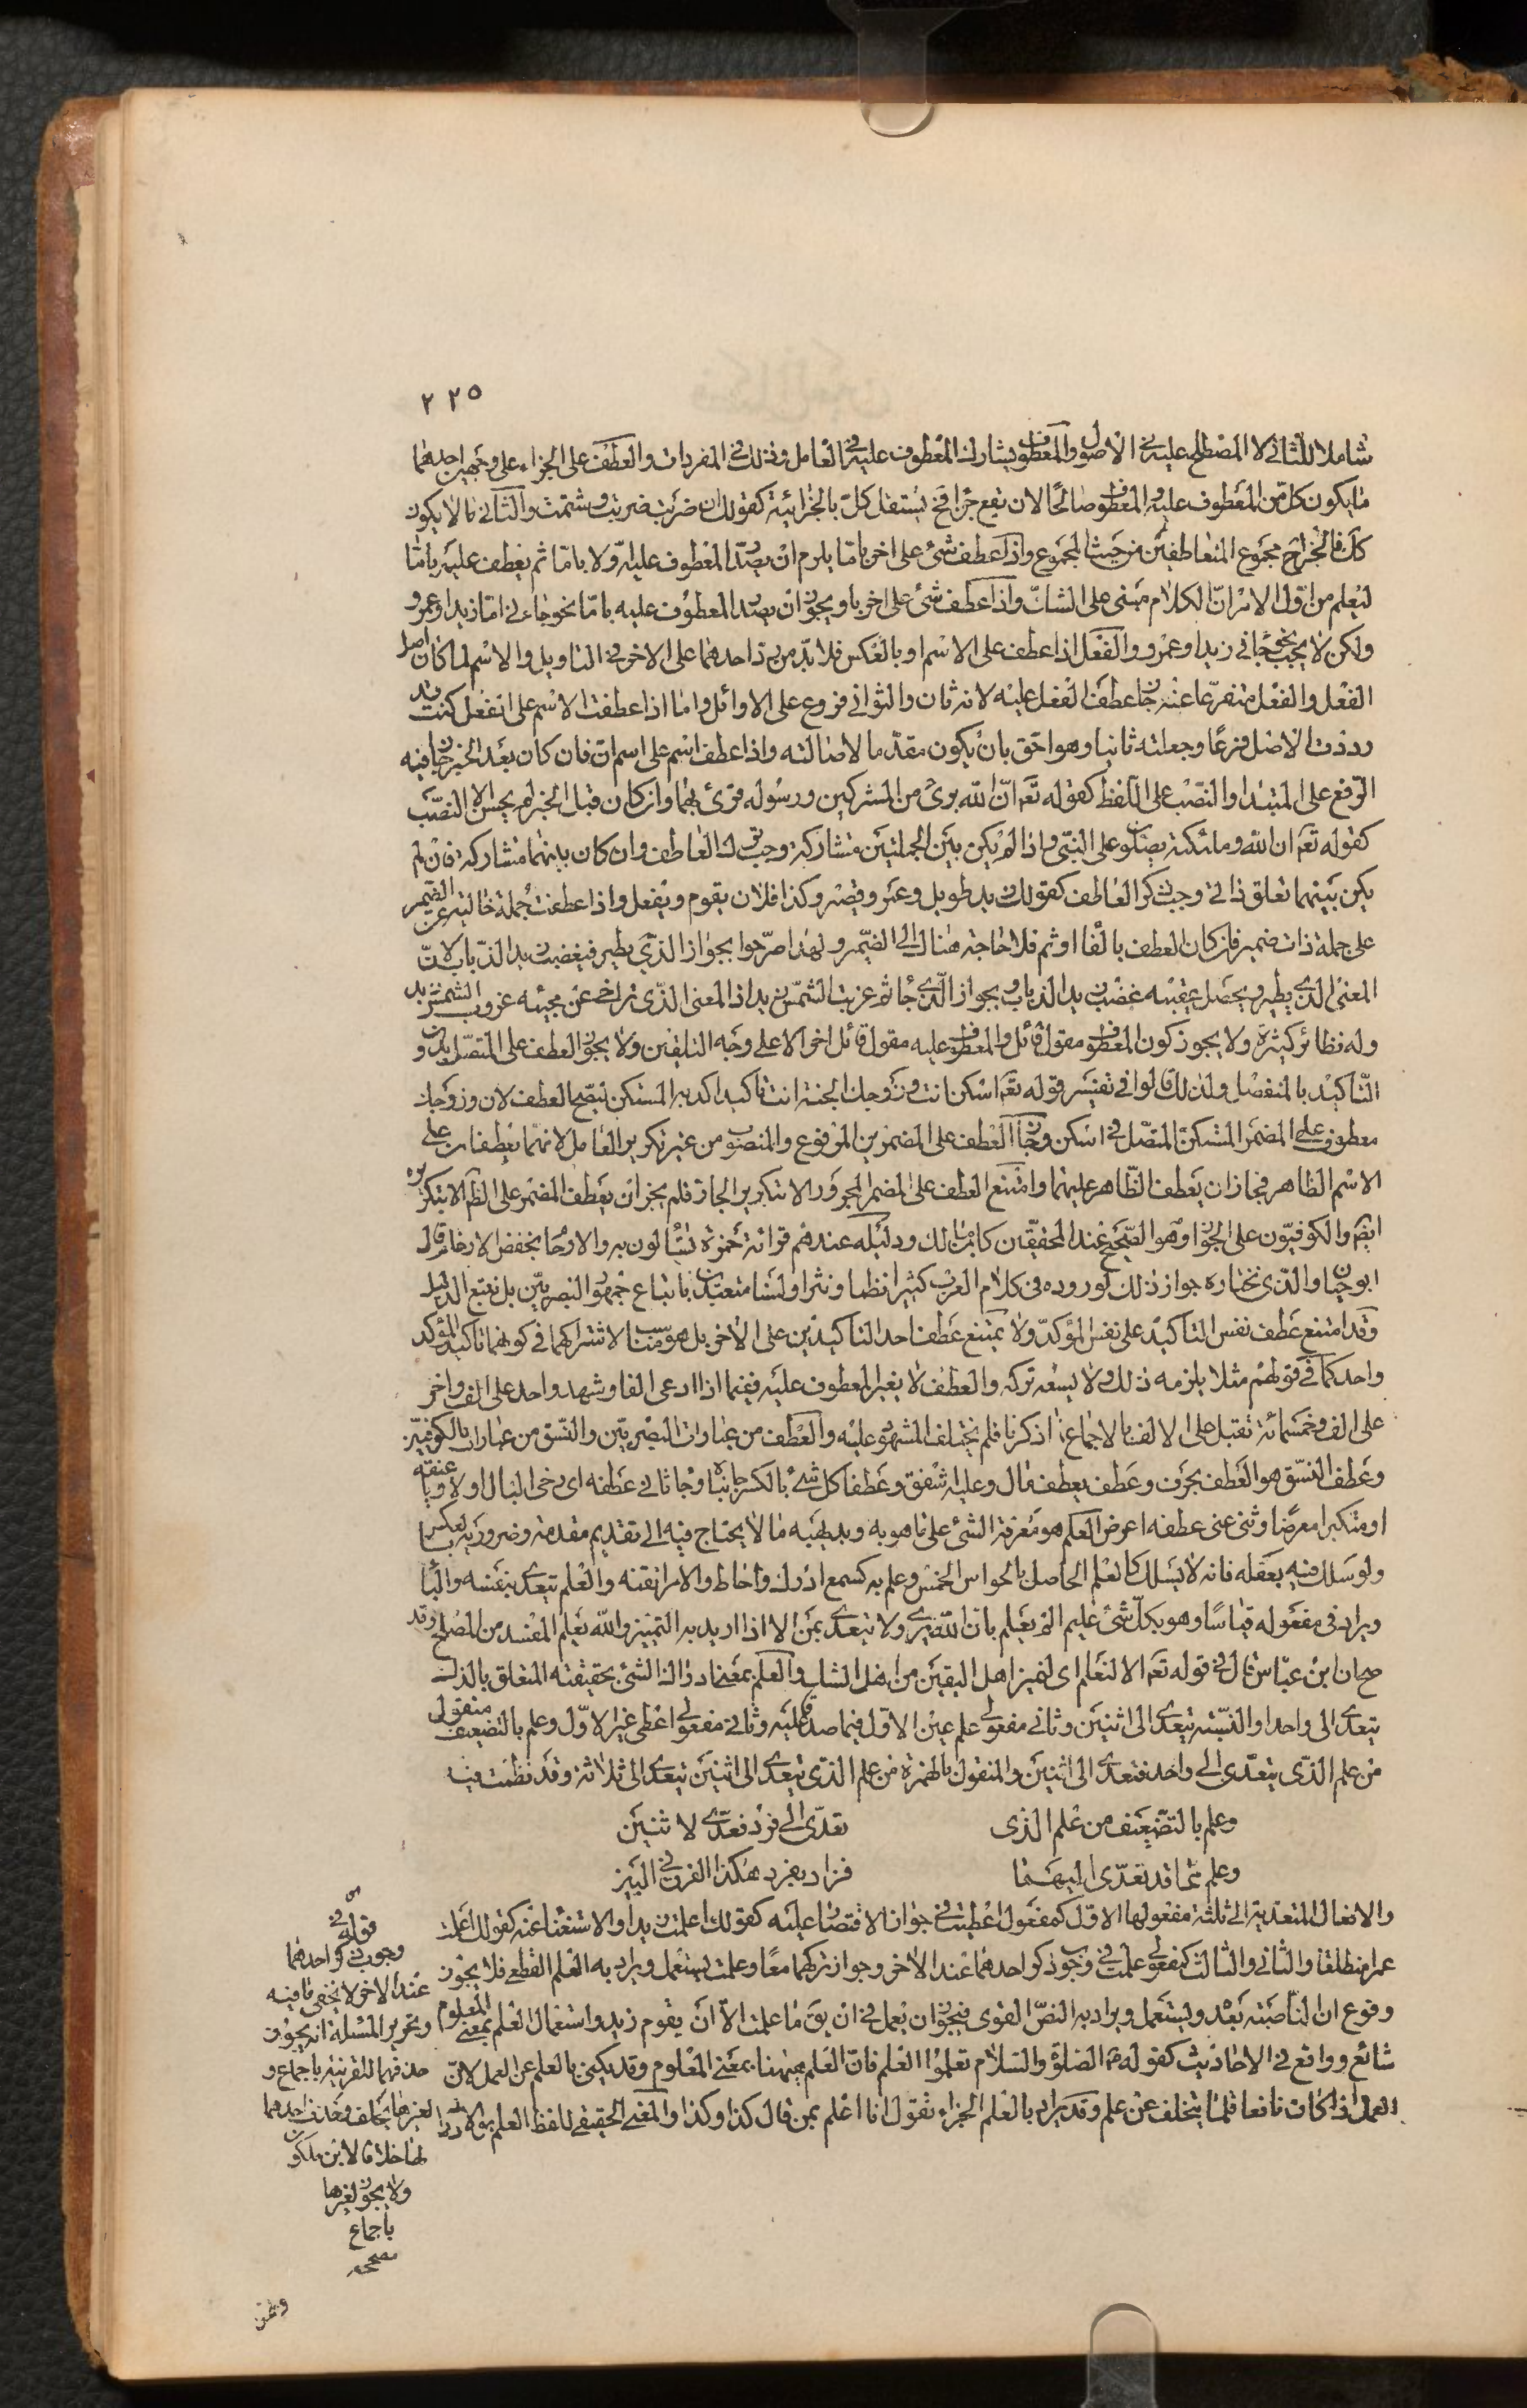 ٢٢٥
شاملا للثانى لا المصطلح عليه فى الاصول والمعطوف يشارك المعطوف عليه فى العامل وذلك فى المفردات والعطف على الجزاء على وجهين احدهما
ما يكون كل من المعطوف عليه والمعطوف صالحا لان يقع جزاء فح يستقل كل بالجزائية كقولك ان ضربت ضربت وشتمت والثانى ما لا يكون
كك فالجزاء ح مجموع المتعاطفين من حيث المجموع واذا عطف شئ على اخر باما يلزم ان يصدر المعطوف عليه اولا باما ثم يعطف عليه باما
ليعلم من اول الامر ان الكلام مبنى على الشك واذا عطف شئ على اخر باو يجوز ان يصدر المعطوف عليه باما نحو جاءنى اما زيد او عمرو
ولكن لا يجب نحو جاءنى زيد او عمرو والفعل اذا عطف على الاسم او بالعكس فلا بد من رد احدهما على الاخر فى التاويل والاسم لما كان اصل
الفعل والفعل متفرعا عنه جاز عطف الفعل عليه لانه ثان والثوانى فروع على الاوائل واما اذا عطفت الاسم على الفعل كنت قد
رددت الاصل فرعا وجعلته ثانيا وهو احق بان يكون مقدما لاصالته واذا عطف اسم على اسم ان فان كان بعد الخبر جاز فيه
الرفع على المبتدا والنصب على اللفظ كقوله تعه ان الله برئ من المشركين ورسوله قرئ بهما وان كان قبل الخبر لم يحسن الا النصب
كقوله تعه ان الله وملائكته يصلون على النبى واذا لم يكن بين الجملتين مشاركة وجب ترك العاطف وان كان بينهما مشاركة فان لم
يكن بينهما تعلق ذاتى وجب ذكر العاطف كقولك زيد طويل وعمرو قصير وكذا فلان يقوم ويفعل واذا عطفت جملة خالية عن الضمير
على جملة ذات ضمير فان كان العطف بالفاء او ثم فلا حاجة هناك الى الضمير ولهذا صرحوا بجواز الذى يطير فيغضب زيد الذباب لان
المعنى الذى يطير ويحصل عقيبه غضب زيد الذباب ويجواز الذى جاء ثم غربت الشمس زيد اذ المعنى الذى تراخى عن مجيئه غروب الشمس زيد
وله نظائر كثيرة ولا يجوز كون المعطوف مقول قائل والمعطوف عليه مقول قائل اخر الا على وجه التلقين ولا يجوز العطف على المتصل بدون
التاكيد بالمنفصل ولذلك قالوا فى تفسير قوله تعه اسكن انت وزوجك الجنة انت تاكيد اكد به المستكن ليصح العطف لان وزوجك
معطوف على المضمر المستكن المتصل فى اسكن وجاز العطف على المضمرين المرفوع والمنصوب من غير تكرير العامل لانهما يعطفان على
الاسم الظاهر فجاز ان يعطف الظاهر عليهما وامتنع العطف على المضمر المجرور الا بتكرير الجار فلم يجز ان يعطف المضمر على الظاهر الا بتكريره
ايضا والكوفيون على الجواز وهو الصحيح عند المحققين كابن مالك ودليله عندهم قراءة حمزة تساءلون به والارحام بخفض الارحام قال
ابو حيان والذى نختاره جواز ذلك لوروده فى كلام العرب كثيرا نظما ونثرا ولسنا متعبدين باتباع جمهور البصريين بل نتبع الدليل
وقد امتنع عطف نفس التاكيد على نفس المؤكد ولا يمتنع عطف احد التاكيدين على الاخر بل هو مناسب لاشتراكهما فى كونهما تاكيد المؤكد
واحد كما فى قولهم مثلا يلزمه ذلك ولا يسعه تركه والعطف لا يغير المعطوف عليه ففيما اذا ادعى الفا وشهد واحد على الف واخر
على الف وخمسمائة تقبل على الالف بالاجماع اذ كرنا فلم يختلف المشهود عليه والعطف من عبارات البصريين والنسق من عبارات الكوفيين
وعطف النسق هو العطف بحرف وعطف يعطف مال وعليه اشفق وعطفا كل شئ بالكسر جانباه وجاء ثانى عطفه اى رخى البال او لاويا عنقه
او متكبرا معرضا وثنى عنى عطفه اعرض العلم هو معرفة الشئ على ما هو به وبديهيه ما لا يحتاج فيه الى تقديم مقدمة وضروريه بالعكس
ولو سلك فيه بعقله فانه لا يسلك كالعلم الحاصل بالحواس الخمس وعلم به كسمع ادرك واحاط والامر اتقنه والعلم يتعدى بنفسه وبالباء
ويزاد فى مفعوله قياسا وهو بكل شئ عليم الم يعلم بان الله يرى ولا يتعدى بمن الا اذا اريد به التمييز والله يعلم المفسد من المصلح وقد
صح ان ابن عباس قال فى قوله تعه الا لنعلم اى لنميز اهل اليقين من اهل الشك والعلم بمعنى ادراك الشئ بحقيقته المتعلق بالذات
يتعدى الى واحد او النسبة يتعدى الى اثنين وثانى مفعولى علم عين الاول فيما صدق عليه وثانى مفعولى اعطى غير الاول وعلم بالتضعيف منقول
من علم الذى يتعدى الى واحد فتعدى الى اثنين والمنقول بالهمزة من علم الذى يتعدى الى اثنين تيعدى الى ثلاثة وقد نظمت فيه
وعلم بالتضعيف من علم الذى    تعدى الى فرد فعدى لاثنين
وعلم مما قد تعدى اليهما    فزاد بفرد هكذا الفرق فى البين
والافعال المتعدية الى ثلثة مفعولها الاول كمفعول اعطيت فى جواز الاقتصار عليه كقولك اعلمت زيدا والاستغناء عنه كقولك اعلمت
عمرا منطلقا والثانى والثالث كمفعولى علمت فى وجوب ذكر احدهما عند الاخر وجواز تركهما معا وعلمت يستعمل ويراد به العلم القطعى فلا يجوز
وقوع ان الناصبة بعده ويستعمل ويراد به الظن القوى فيجوز ان يعمل فى ان يق ما علمت الا ان يقوم زيد واستعمال العلم بمعنى المعلوم
شائع وواقع فى الاحاديث كقوله عم الصلوة والسلام تعلموا العلم فان العلم ههنا بمعنى المعلوم وقد يكنى بالعلم عن العمل لان
العمل اذا كان نافعا قلما يتخلف عن علم وقد يراد بالعلم الجزاء تقول انا اعلم بمن قال كذا وكذا والمعنى الحقيقى للفظ العلم هو الادراك
قوله فى
وجوب ذكر احدهما
عند الاخر لا يخفى ما فيه
وتحرير المسئلة انه يجوز
حذفهما للقرينة باجماع و
لغيرها بخلف وحذف احدهما
لها خلافا لابن ملكون
ولا يجوز لغيرها
باجماع
مصححه
ولمن